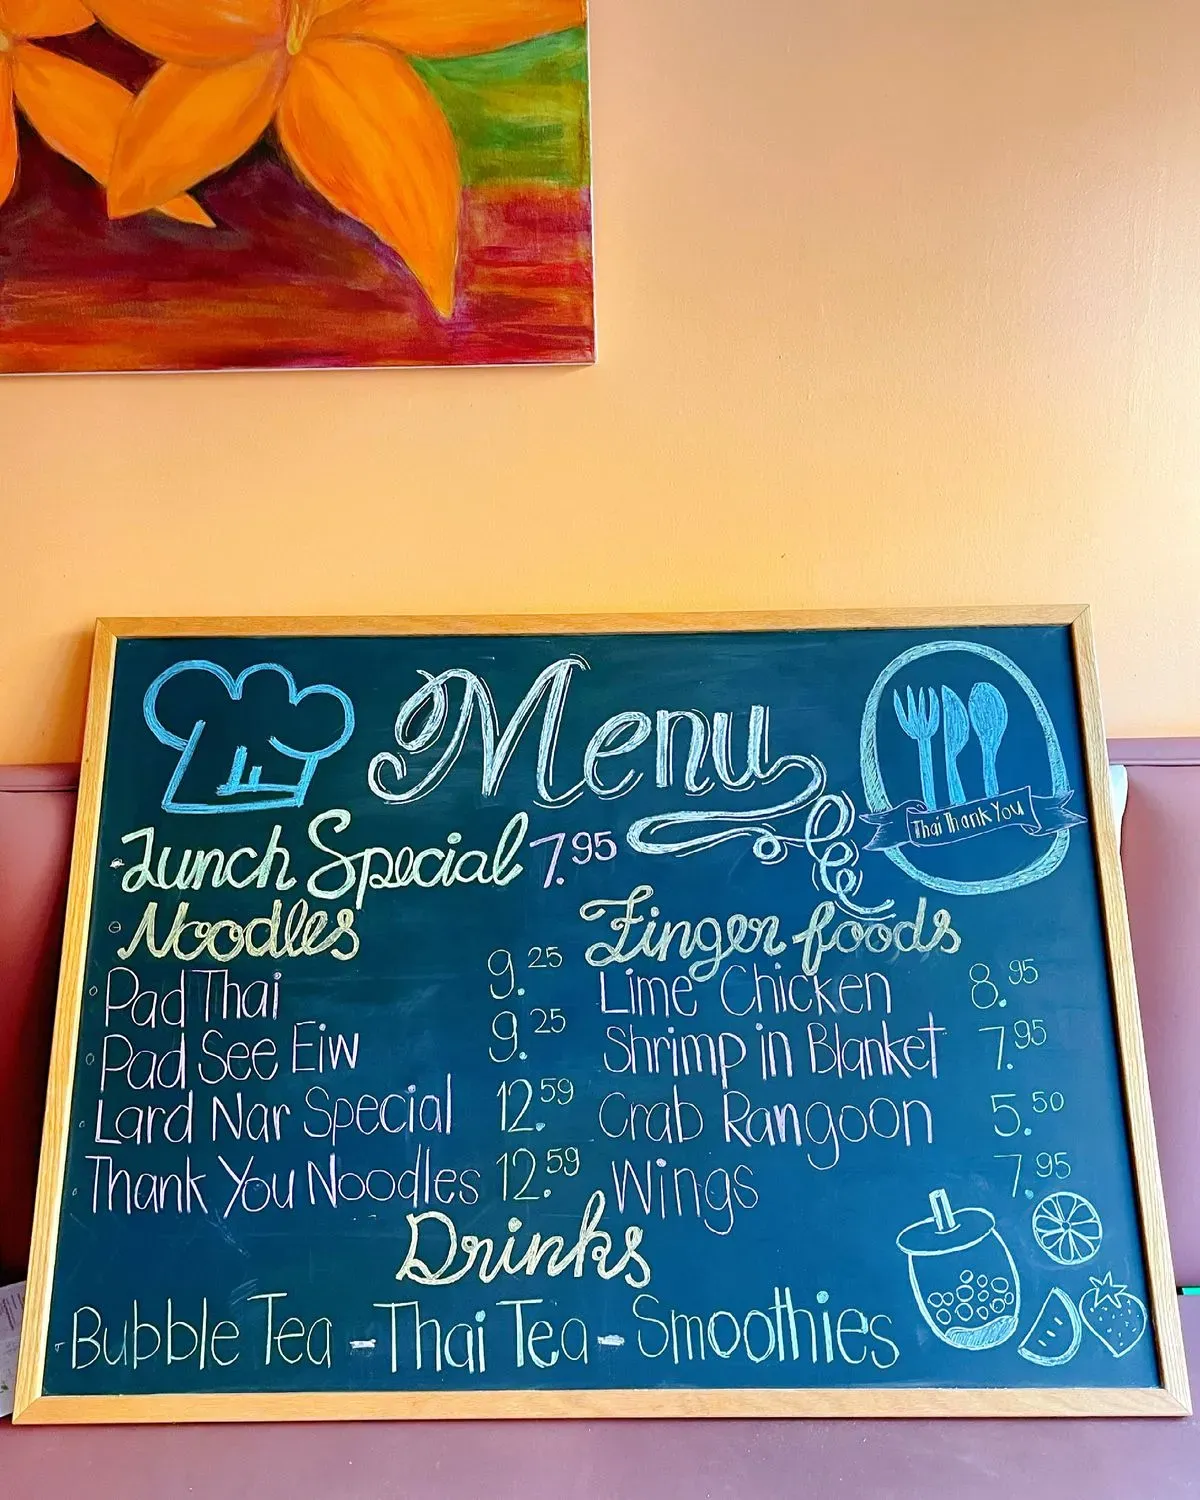 Menu
Thai Thank You
Lunch Special 7.95
Noodles
Pad Thai 9.25
Pad See Eiw 9.25
Lard Nar Special 12.59
Thank You Noodles 12.59
Finger foods
Lime Chicken 8.95
Shrimp in Blanket 7.95
Crab Rangoon 5.50
Wings 7.95
Drinks
Bubble Tea - Thai Tea - Smoothies